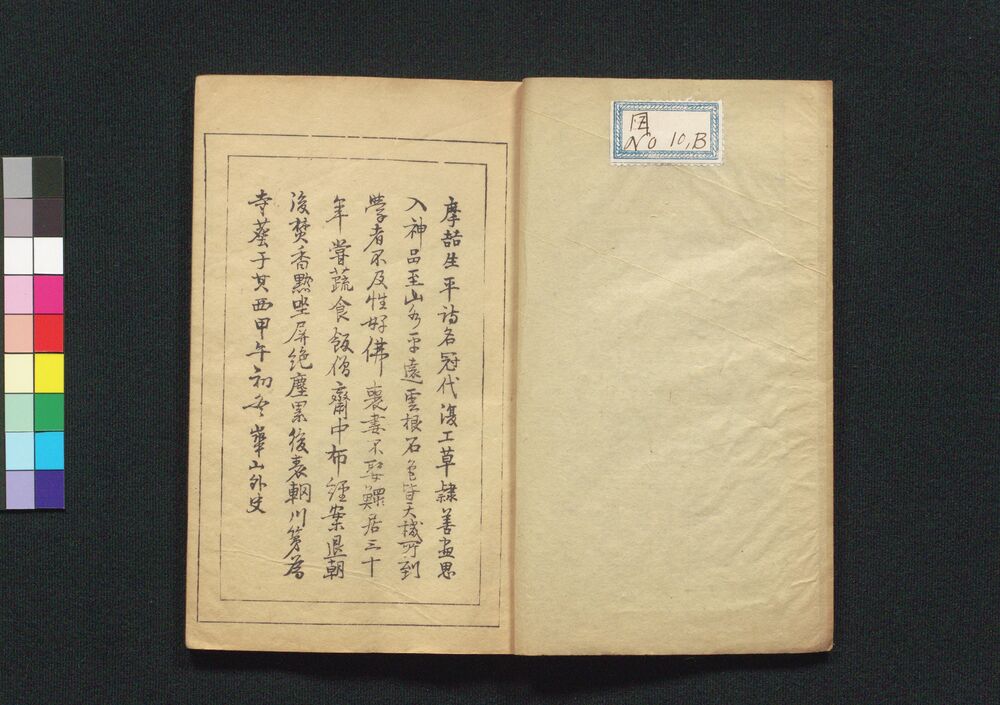 図
No 10,B
摩喆生平詩名冠代復工草隷善畫思
入神品至山水平遠雲根石色皆天機所到
學者不及性好佛喪妻不娶鰥居三十
年嘗蔬食飯僧齋中布經案退朝
後焚香黙坐屏絶塵累後表輞川第為
寺葬于其西甲午初冬崋山外史